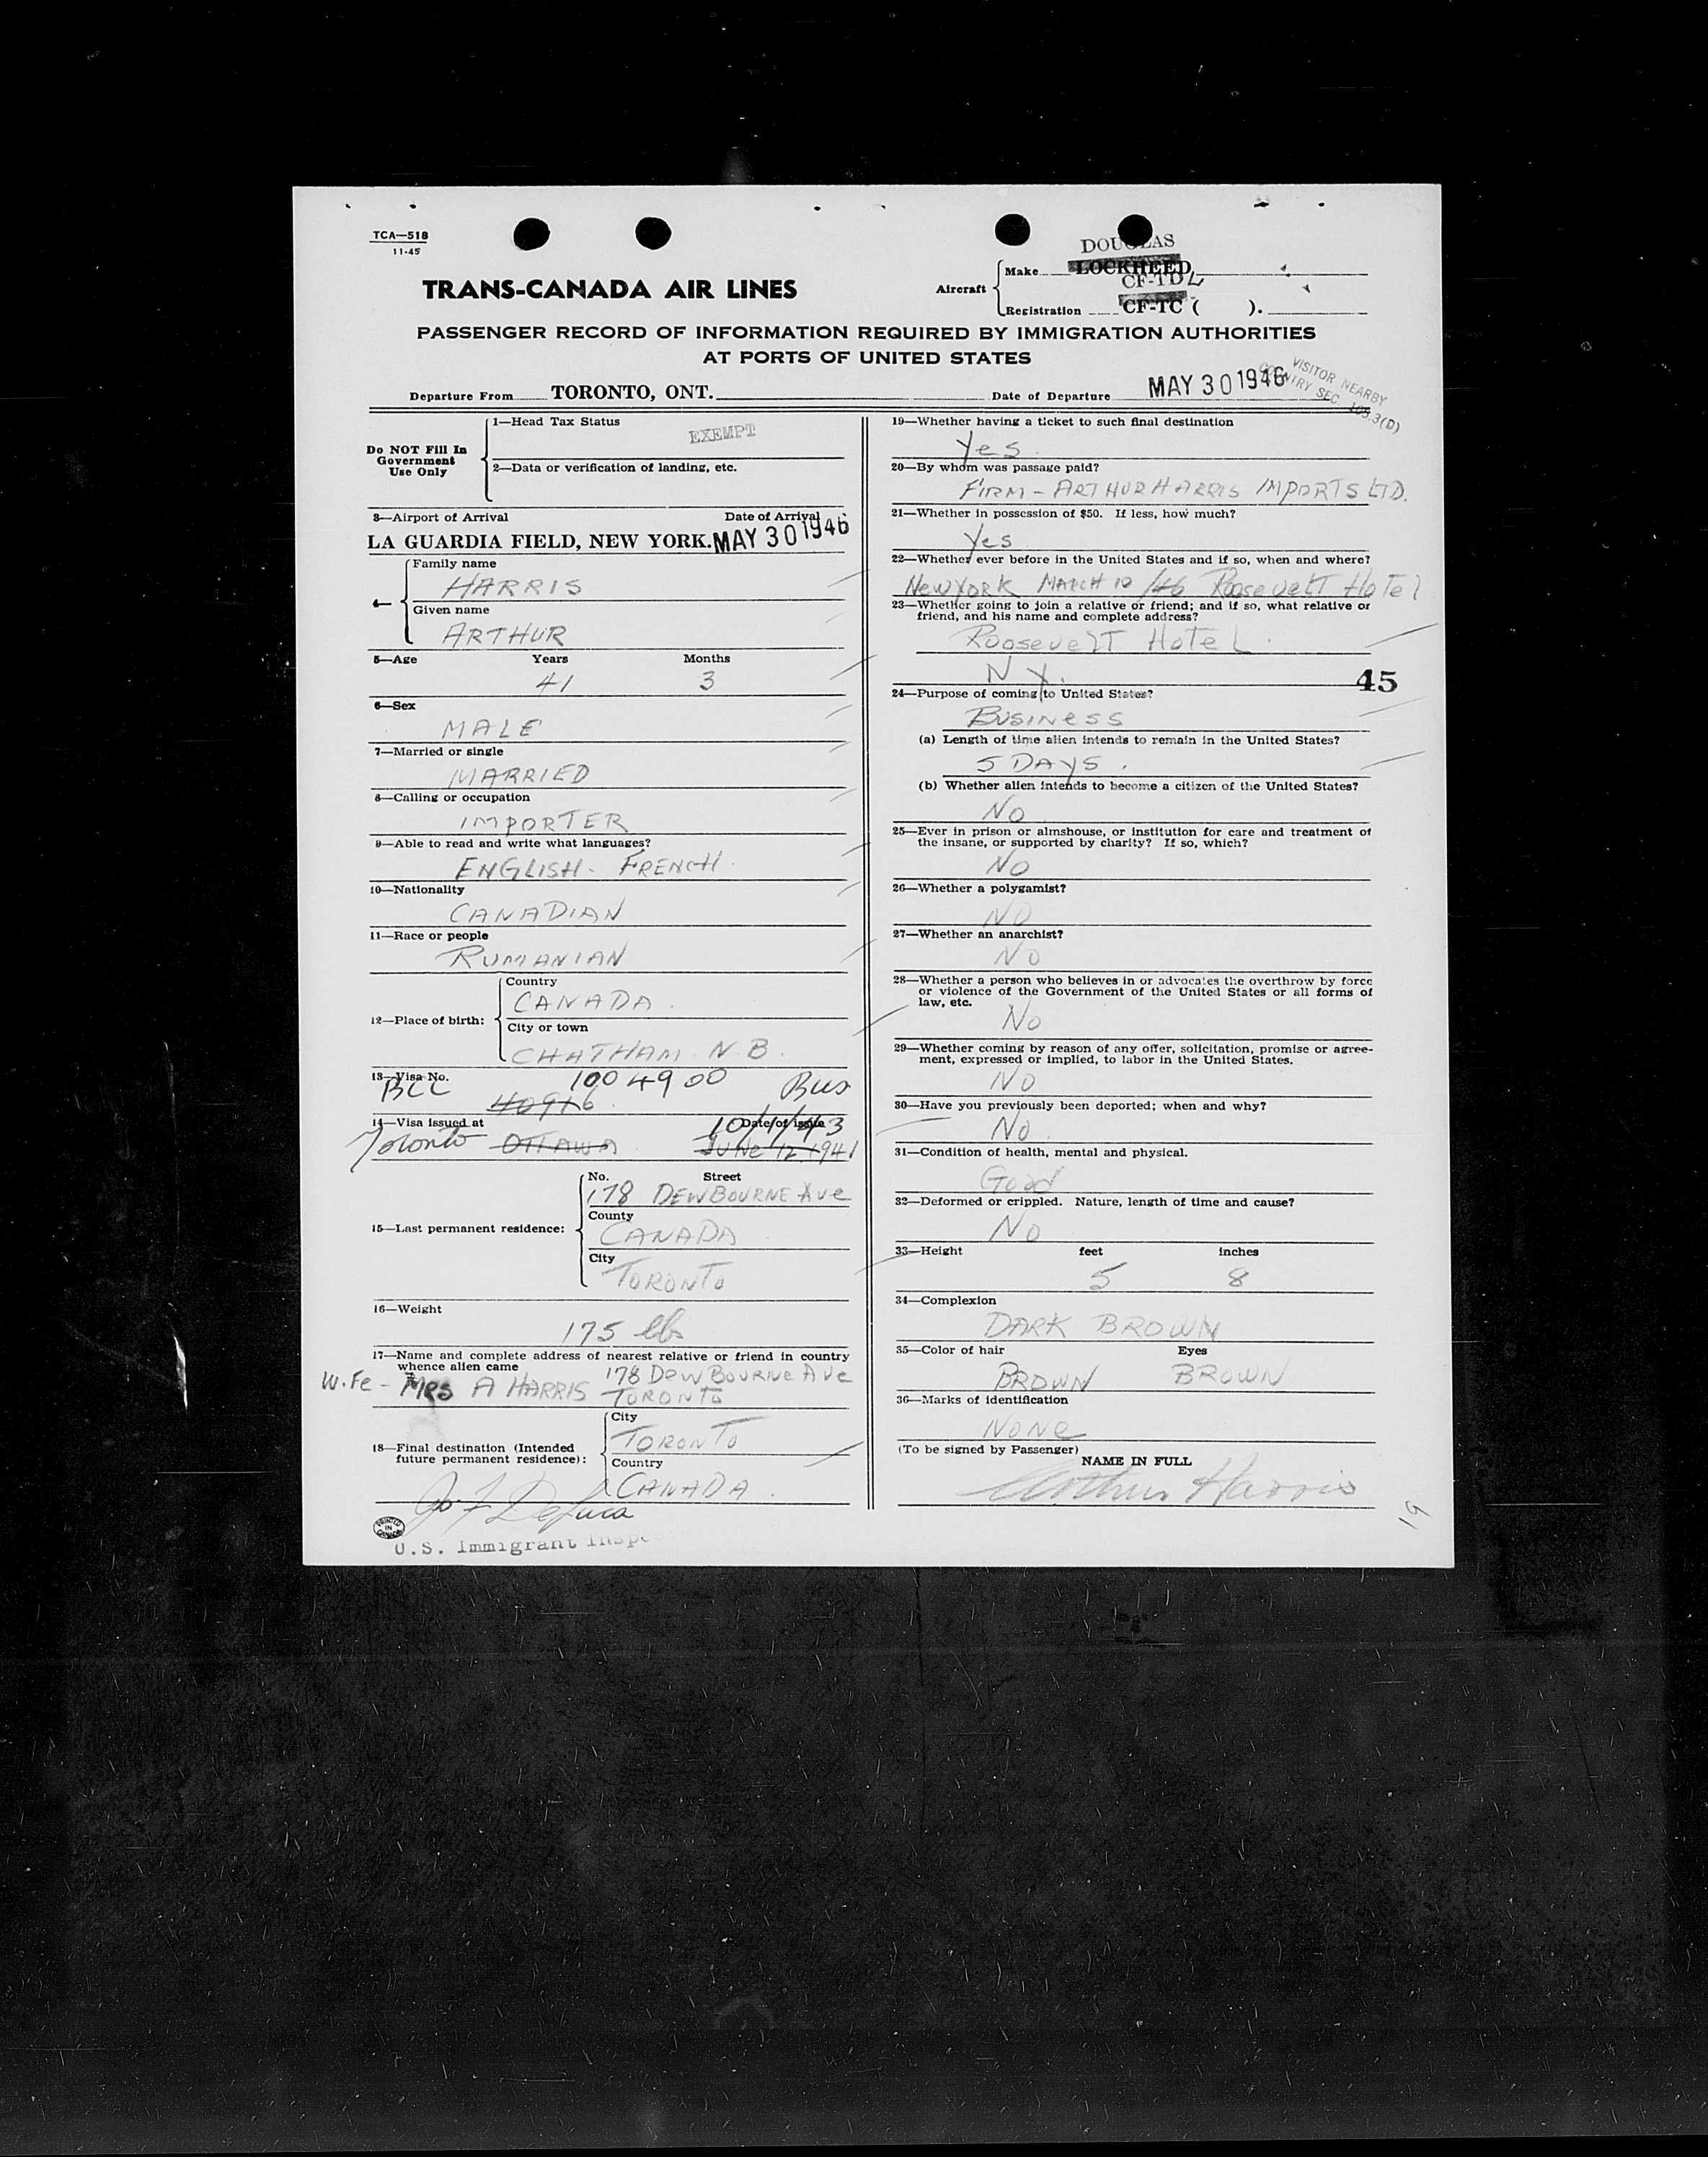 TCA—518
11-45
TRANS-CANADA AIR LINES
DOUGLAS
Aircraft
Make LOCKHEED
CF-TDL
Registration CF-TC ( ).
PASSENGER RECORD OF INFORMATION REQUIRED BY IMMIGRATION AUTHORITIES
AT PORTS OF UNITED STATES
Departure From TORONTO, ONT.
Date of Departure MAY 30 1946
VISITOR NEARBY
COUNTRY SEC. 105.3(D)
Do NOT Fill In
Government
Use Only
1—Head Tax Status
EXEMPT
2—Data or verification of landing, etc.
3—Airport of Arrival Date of Arrival
LA GUARDIA FIELD, NEW YORK. MAY 30 1946
Family name
HARRIS
Given name
ARTHUR
5—Age Years Months
41 3
6—Sex
MALE
7—Married or single
MARRIED
8—Calling or occupation
IMPORTER
9—Able to read and write what languages?
ENGLISH - FRENCH
10—Nationality
CANADIAN
11—Race or people
RUMANIAN
12—Place of birth:
Country
CANADA.
City or town
CHATHAM. N.B.
13—Visa No.
BCC 1004900 Bus
40916
14—Visa issued at Date of issue
10/4/43
Toronto OTTAWA JUNE 12 1941
15—Last permanent residence:
No. Street
178 DEWBOURNE AVE
County
CANADA
City
TORONTO
16—Weight
175 lbs
17—Name and complete address of nearest relative or friend in country
whence alien came
178 DEWBOURNE AVE
WiFe - MRS A HARRIS TORONTO
18—Final destination (Intended
future permanent residence):
City
TORONTO
Country
CANADA.
PRINTED
IN
CANADA
U.S. Immigrant Inspe
19—Whether having a ticket to such final destination
Yes
20—By whom was passage paid?
FIRM - ARTHUR HARRIS IMPORTS LTD.
21—Whether in possession of $50. If less, how much?
Yes
22—Whether ever before in the United States and if so, when and where?
NEW YORK MARCH 10/46 Roosevelt Hotel
23—Whether going to join a relative or friend; and if so, what relative or
friend, and his name and complete address?
Roosevelt Hotel.
N.Y.
45
24—Purpose of coming to United States?
BUSINESS
(a) Length of time alien intends to remain in the United States?
5 DAYS.
(b) Whether alien intends to become a citizen of the United States?
NO
25—Ever in prison or almshouse, or institution for care and treatment of
the insane, or supported by charity? If so, which?
NO
26—Whether a polygamist?
NO
27—Whether an anarchist?
NO
28—Whether a person who believes in or advocates the overthrow by force
or violence of the Government of the United States or all forms of
law, etc.
No
29—Whether coming by reason of any offer, solicitation, promise or agree-
ment, expressed or implied, to labor in the United States.
NO
30—Have you previously been deported; when and why?
No
31—Condition of health, mental and physical.
Good
32—Deformed or crippled. Nature, length of time and cause?
NO
33—Height feet inches
5 8
34—Complexion
DARK BROWN
35—Color of hair Eyes
BROWN BROWN
36—Marks of identification
NONE
(To be signed by Passenger)
NAME IN FULL
Arthur Harris